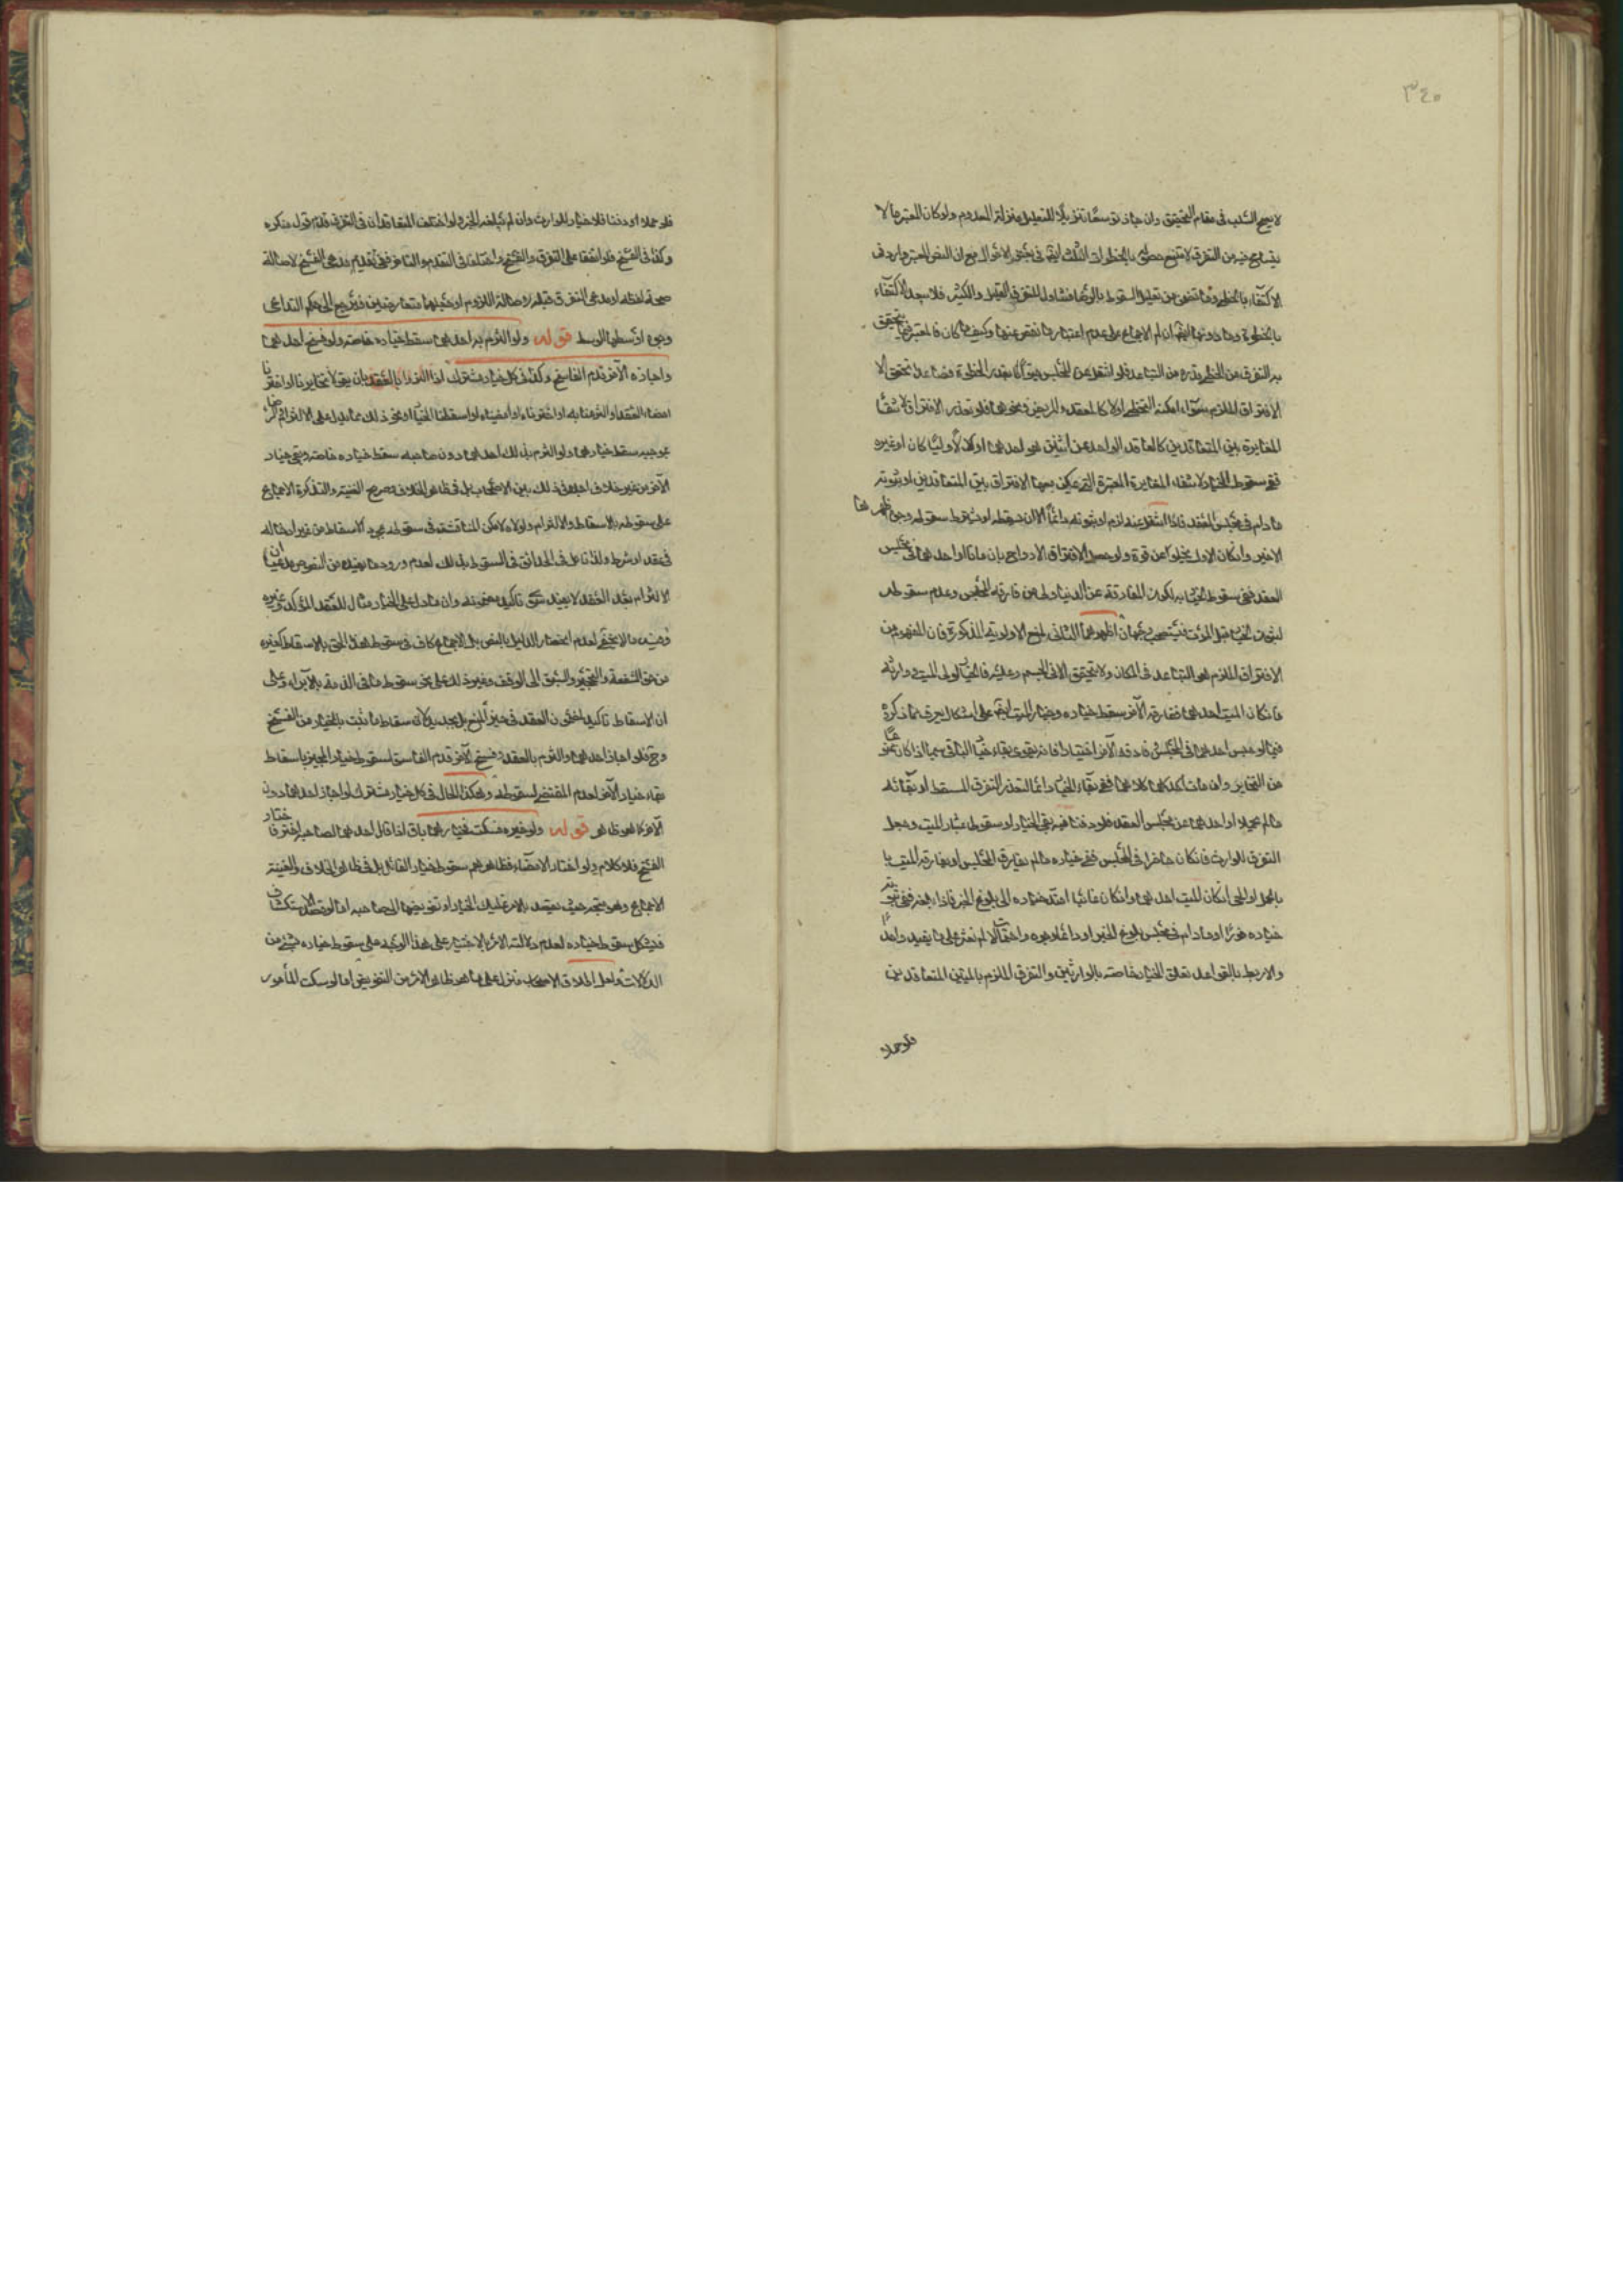 ٣٤٠
لا يصح السلب فى مقام التحقيق وان جاز توسعًا تنزيلًا للقليل منزلة المعدوم ولو كان المعتبر ما لا
يتسامح فيه من التفرق لا متنع بالخطوات الثلث ايضًا فى بعض الاحوال مع ان النص المعتبر وارد فى
الاكتفاء بالخطى وما تضمن تعليل السقوط بالرضا متناول للتفرق القليل والكثير فلا يبعد الاكتفاء
بالخطوة وما دونها ايضًا ان لم الاجماع على عدم اعتبار ما نقص عنها وكيف كان فالمعتبر فيما يتحقق
به التفرق من الخطى بقدره من التباعد فلو انتقل عن المجلس بقدر الخطوة فصاعدا تحقق الا
الافتراق الملزم سواء امكنه التخطى اولا كالمقعد والمريض ونحوهما فلو تعذر الافتراق لانتفا
المغايرة بين المتعاقدين كالعاقد الواحد عن اثنين هو احدهما او لا وليا كان او غيره
ففى سقوط الخيار لانتفاء المغايرة المعتبرة التى يمكن معها الافتراق بين المتعاقدين او ثبوته
ما دام فى مجلس العقد فاذا انتقل عنه لزم او ثبوته دائمًا الا ان يسقطه او شرط سقوطه وجوه اظهرها
الاخير وان كان الاول لا يخلو عن قوة ولو حصل الافتراق الارواح بان ماتا او احدهما فى مجلس
العقد ففى سقوط الخيار به لكون المفارقة عن الدنيا اولى من مفارقة المجلس وعدم سقوطه
لثبوت الخيار قبل الموت فيستصحب وجهان اظهرهما الثانى لمنع الاولوية المذكورة فان المفهوم من
الافتراق الملزم هو التباعد فى المكان ولا يتحقق الا فى الجسم وعليه فالخيار لولى الميت ووارثه
فان كان الميت احدهما ففارقه الآخر سقط خياره وخيار الميت ايضًا على اشكال يعرف مما ذكره
فيما لو حبس احدهما فى المجلس فارقه الآخر اختيارا فانه يقوى بقاء خيار الباقى سيما اذا كان ممنوعًا
من التخاير وان مات كلاهما ففى بقاء الخيار دائما لتعذر التفرق المسقط او بقائه
ما لم يحملا او احدهما عن مجلس العقد فلو دفنا فيه بقى الخيار او سقوط اعتبار الميت وجعل
التفرق للوارث فان كان حاضرا فى المجلس ففى خياره ما لم يفارق المجلس او يفارقه الميت
بالحمل او الحى ان كان الميت احدهما وان كان غائبا امتد خياره الى بلوغ الخبر فاذا بلغه ففى ثبوت
خياره فورًا او ما دام فى مجلس بلوغ الخبر او دائما وجوه واحتمالات لم نعثر على ما يفيد واحدا
والاربط بالقواعد تعلق الخيار خاصة بالوارثين والتفرق الملزم بالميتين المتعاقدين
فلو حملا
فلو حملا او دفنا فلا خيار للوارث وان لم يبلغه الخبر ولو اختلف المتعاقدان فى التفرق قدم قول منكره
وكذا فى الفسخ فلو اتفقا على التفرق والفسخ واختلفا فى التقدم والتاخر ففى تقديم مدعى الفسخ لاصالة
صحة لفظه او مدعى التفرق قبله لاصالة اللزوم او جعلهما متعارضين فيرجع الى حكم التداعى
وجوه اوسطها الوسط قوله ولو التزم به احدهما سقط خياره خاصة ولو فسخ احدهما
واجازه الآخر قدم الفاسخ وكذا فى كل خيار مشترك اذا التزما بالعقد بان يقولا تخايرنا او اخترنا
امضاء العقد او التزمنا به او اخترناه او امضيناه او اسقطنا الخيار او نحو ذلك مما يدل على الالتزام والرضا
بموجبه سقط خيارهما ولو التزم بذلك احدهما دون صاحبه سقط خياره خاصة وبقى خيار
الآخر من غير خلاف اجده فى ذلك بين الاصحاب بل فى ظاهر الخلاف وصريح الغنية والتذكرة الاجماع
على سقوطه بالاسقاط والالتزام ولولاه لامكن المناقشة فى سقوطه بمجرد الاسقاط من غير ادخاله
فى عقد او شرط ولذا تامل فى الحدائق فى السقوط بذلك لعدم ورود ما يفيده من النصوص مدعيا ان
الالتزام بعد العقد لا يفيد سوى تاكيد مضمونه وان ما دل على الخيار متناول للعقد المؤكد وغيره
وفيه ما لا يخفى لعدم انحصار الدليل بالنص بل الاجماع كاف فى سقوط هذا الحق بالاسقاط كغيره
من حق الشفعة والتحجير والسبق الى الوقف وغير ذلك على نحو سقوط ما فى الذمة بالابراء وعلى
ان الاسقاط تاكيد لمضمون العقد فى حيز المنع بل تجديد لان سقاط ما ثبت بالخيار من الفسخ
وح فلو اجاز احدهما والتزم بالعقد وفسخ الآخر قدم الفاسخ لسقوط خيار المجيز باسقاط
بقاء خيار الآخر لعدم المقتضى لسقوطه وهكذا الحال فى كل خيار مشترك لو اجاز احدهما دون
الآخر كما هو ظاهر قوله ولو خيره فسكت فخيارهما باق اذا قال احدهما لصاحبه اختر فاختار
الفسخ فلا كلام ولو اختار الامضاء فظاهرهم سقوط خيار القائل بل فى ظاهر الخلاف والغنية
الاجماع وهو متجه حيث يقصد بالامر تمليك الخيار او تفويضها الى صاحبه اما لو قصد الاستكشاف
فيشكل سقوط خياره لعدم دلالة الامر بالاختيار على هذا الوجه على سقوط خياره بشىء من
الدلالات ولعل اطلاق الاصحاب منزل على ما هو ظاهر الامر من التفويض اما لو سكت المأمور